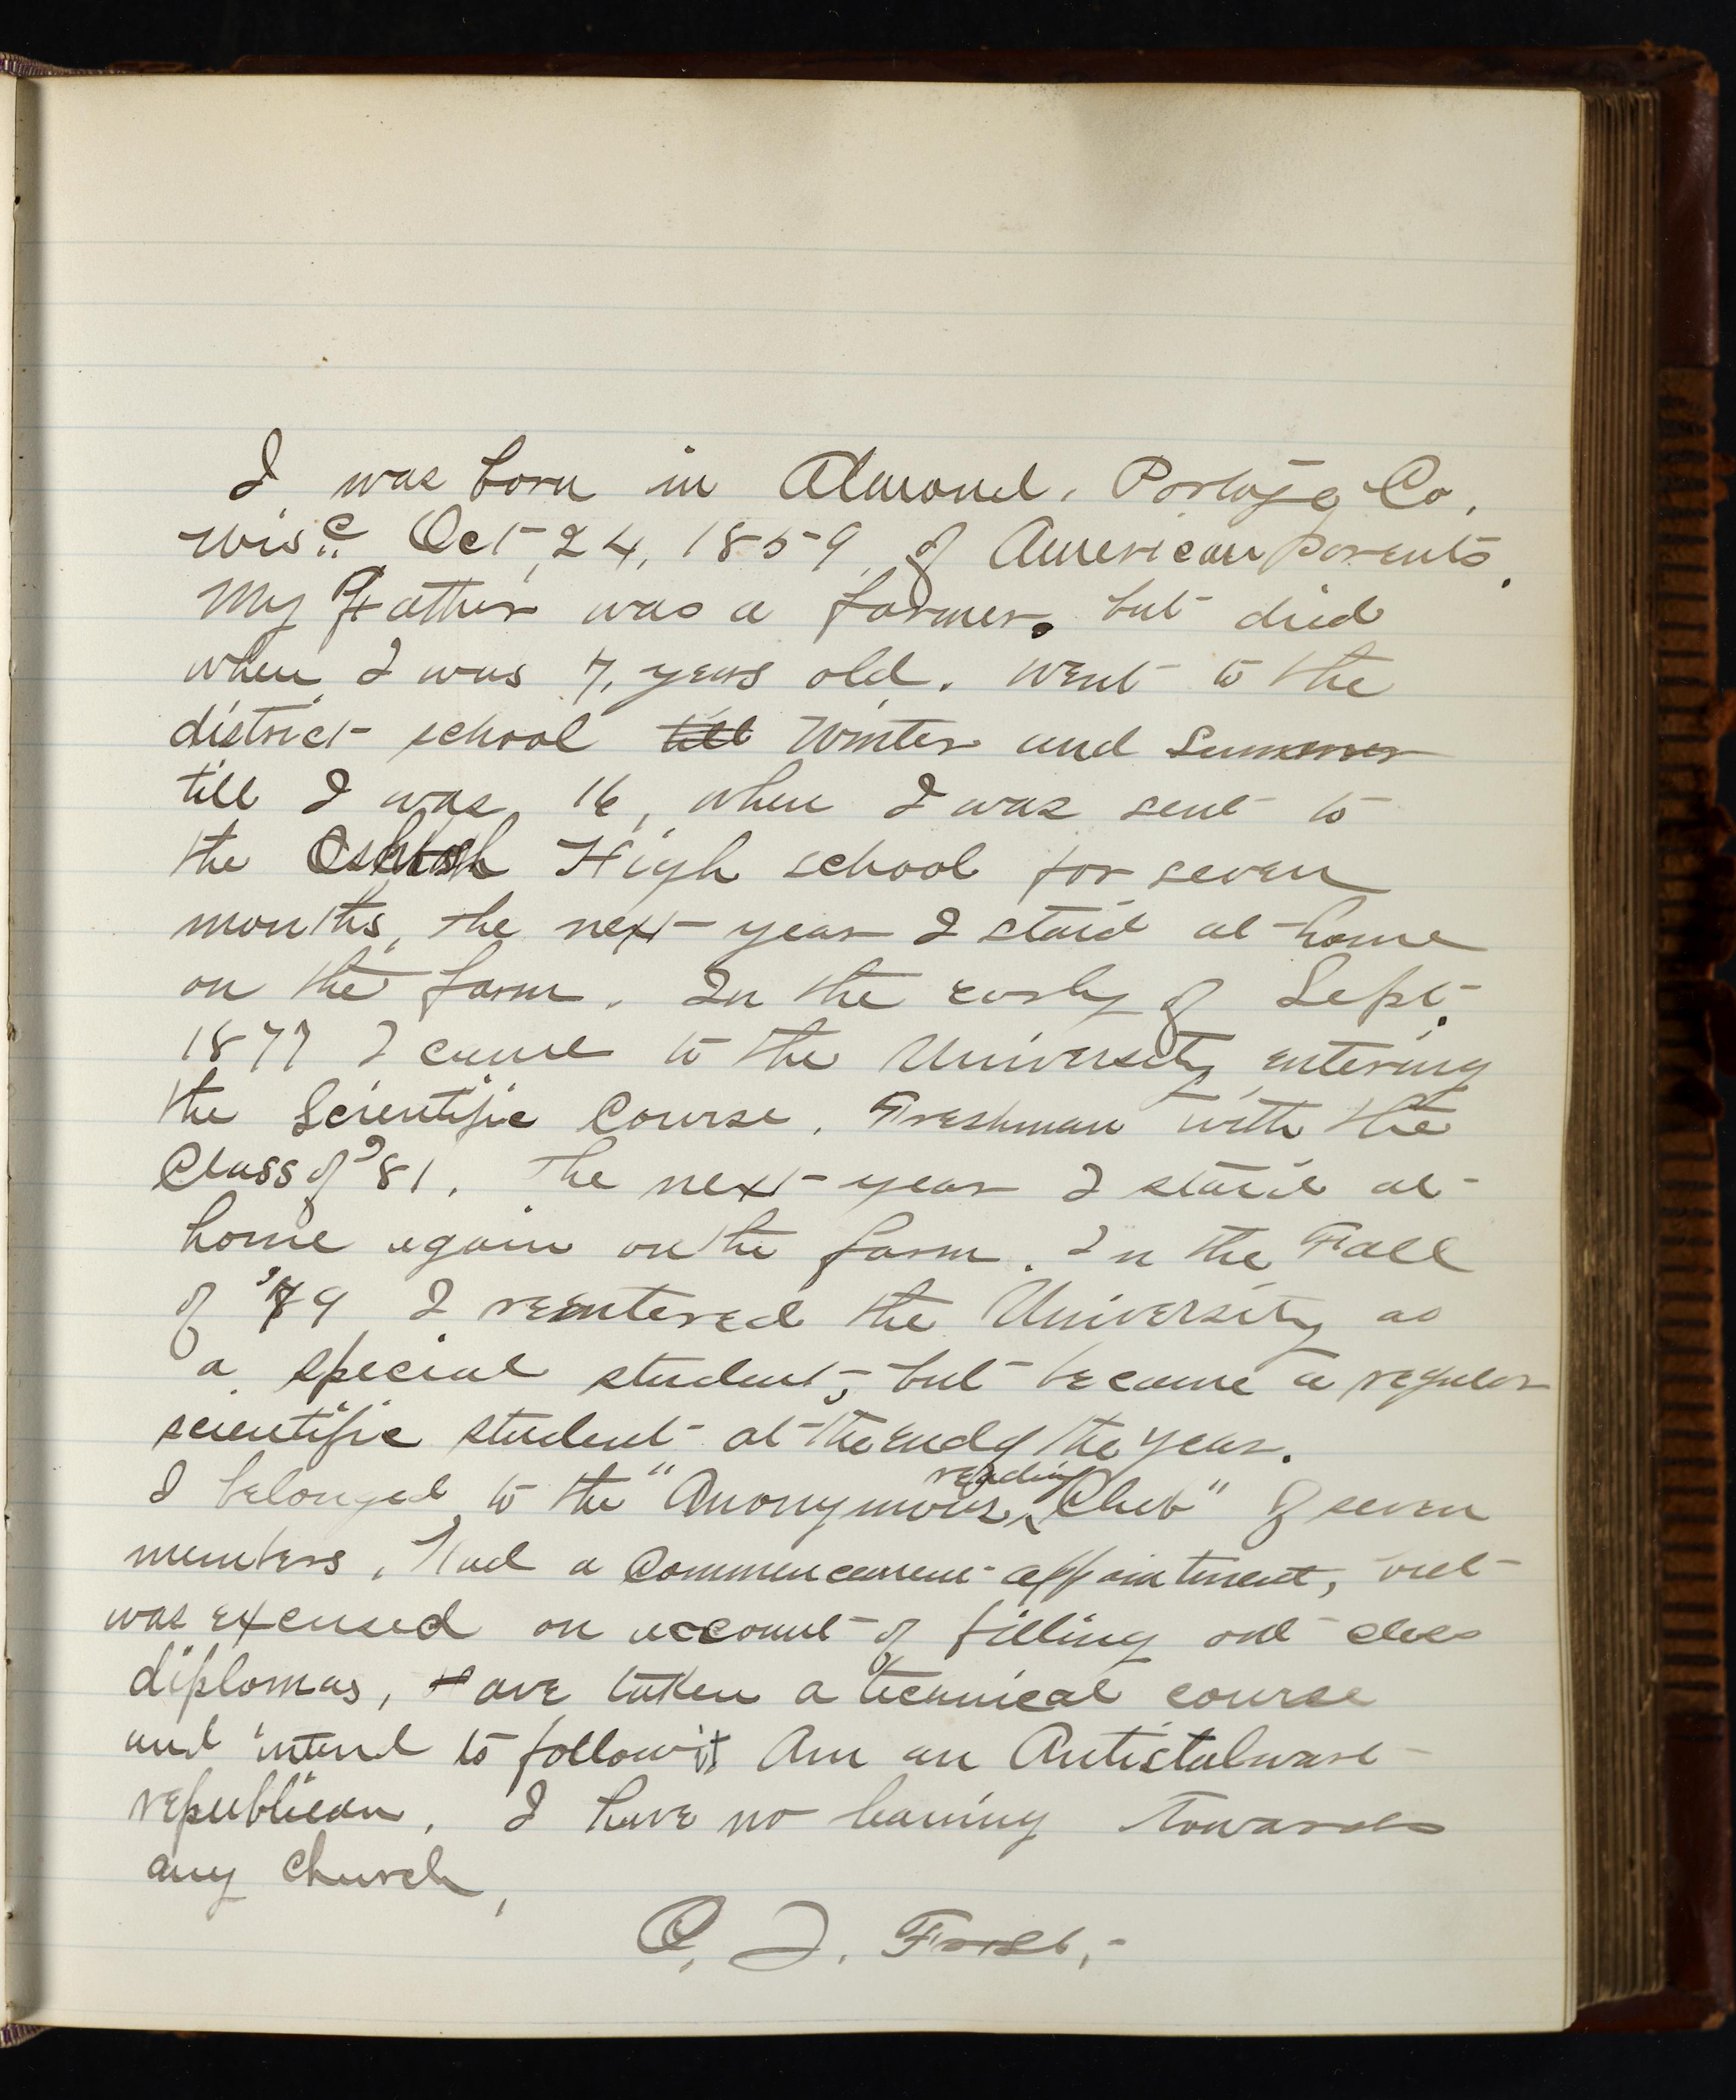 I was born in Almond, Portage Co,
Wisc. Oct 24, 1859, of American parents.
My Father was a farmer, but died
when I was 7, years old. went to the
district school till Winter and Summer
till I was 16, when I was sent to
the Oshkosh High school for seven
months, the next year I staid at home
on the farm. In the early of Sept.
1877 I came to the University entering
the Scientific Course, Freshman with the
Class of '81. The next year I staid at
home again on the farm. In the Fall
of '79 I reentered the University as
a special student, but became a regular
scientific student at the end of the year.
I belonged to the "Anonymous reading Club" of seven
members, Had a Commencement appointment, but
was excused on account of filling out class
diplomas, Have taken a technical course
and intend to follow it Am an Antistalwart
republican, I have no leaning towards
any Church,
O. J. Frost,-